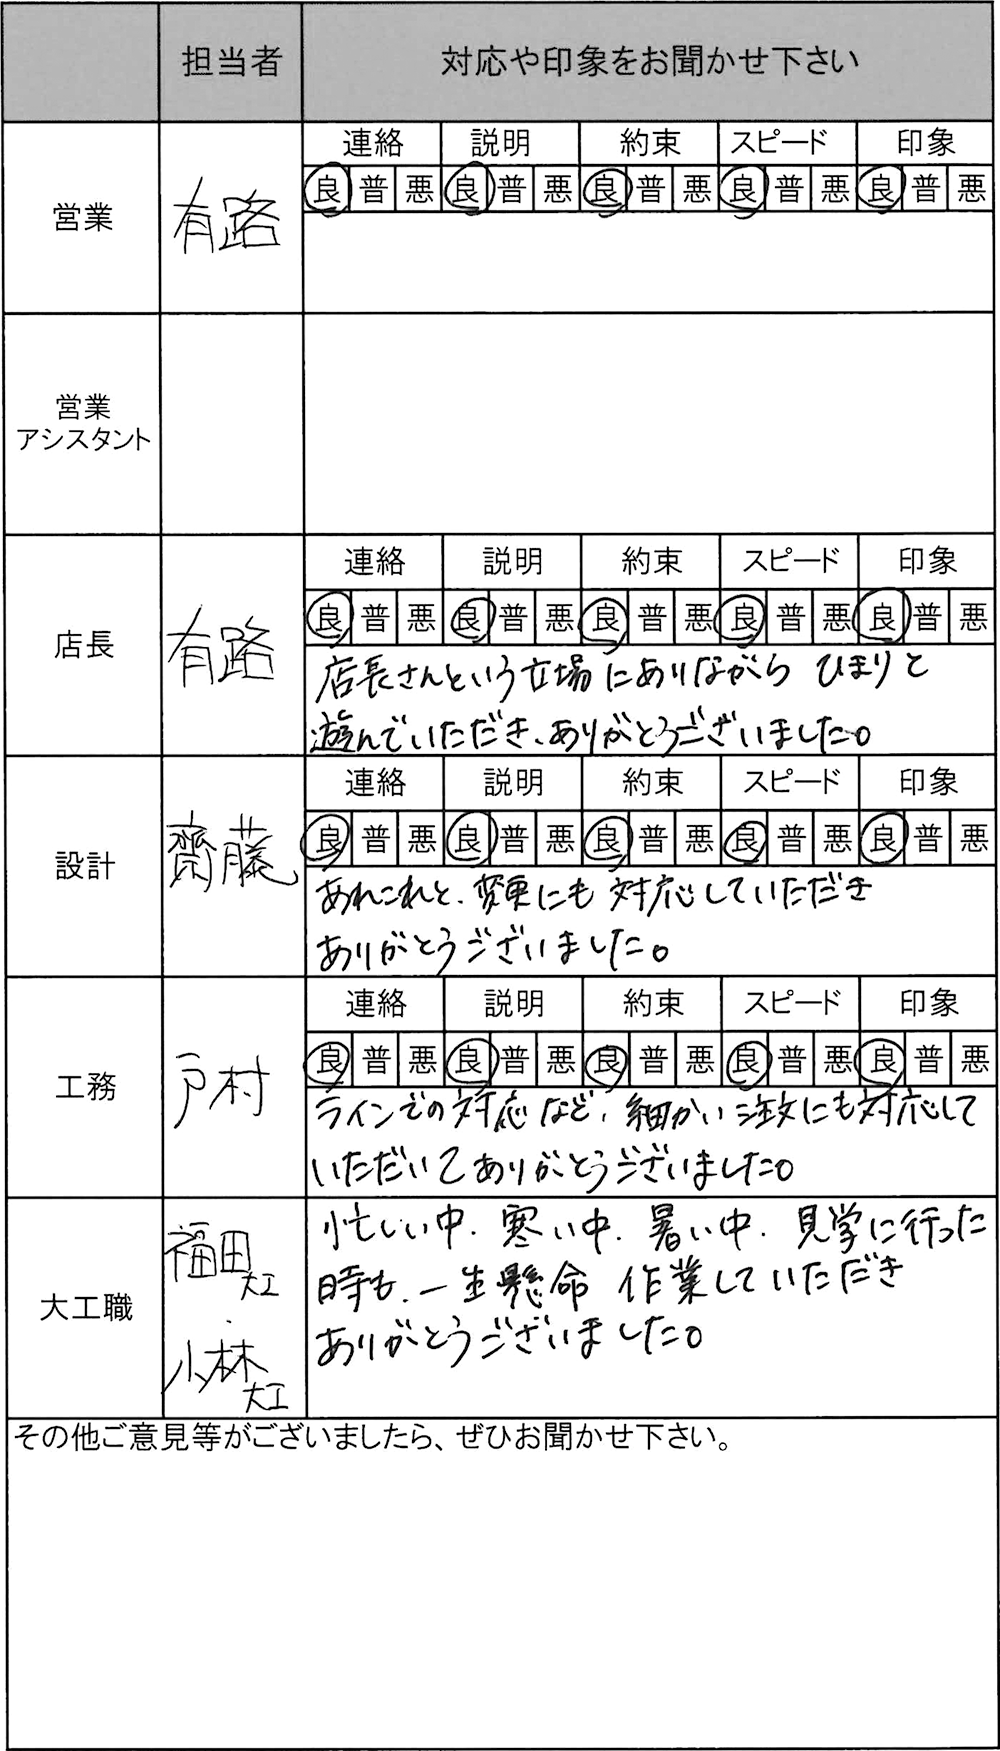 担当者 対応や印象をお聞かせ下さい
営業 有路
連絡 説明 約束 スピード 印象
良 普 悪 良 普 悪 良 普 悪 良 普 悪 良 普 悪
営業
アシスタント
店長 有路
連絡 説明 約束 スピード 印象
良 普 悪 良 普 悪 良 普 悪 良 普 悪 良 普 悪
店長さんという立場にありながら ひまりと
遊んでいただき、ありがとうございました。
設計 齋藤
連絡 説明 約束 スピード 印象
良 普 悪 良 普 悪 良 普 悪 良 普 悪 良 普 悪
あれこれと、変更にも対応していただき
ありがとうございました。
工務 戸村
連絡 説明 約束 スピード 印象
良 普 悪 良 普 悪 良 普 悪 良 普 悪 良 普 悪
ラインでの対応など、細かい注文にも対応して
いただいてありがとうございました。
大工職
福田大工
・
小林大工
忙しい中、寒い中、暑い中、見学に行った
時も、一生懸命 作業していただき
ありがとうございました。
その他ご意見等がございましたら、ぜひお聞かせ下さい。